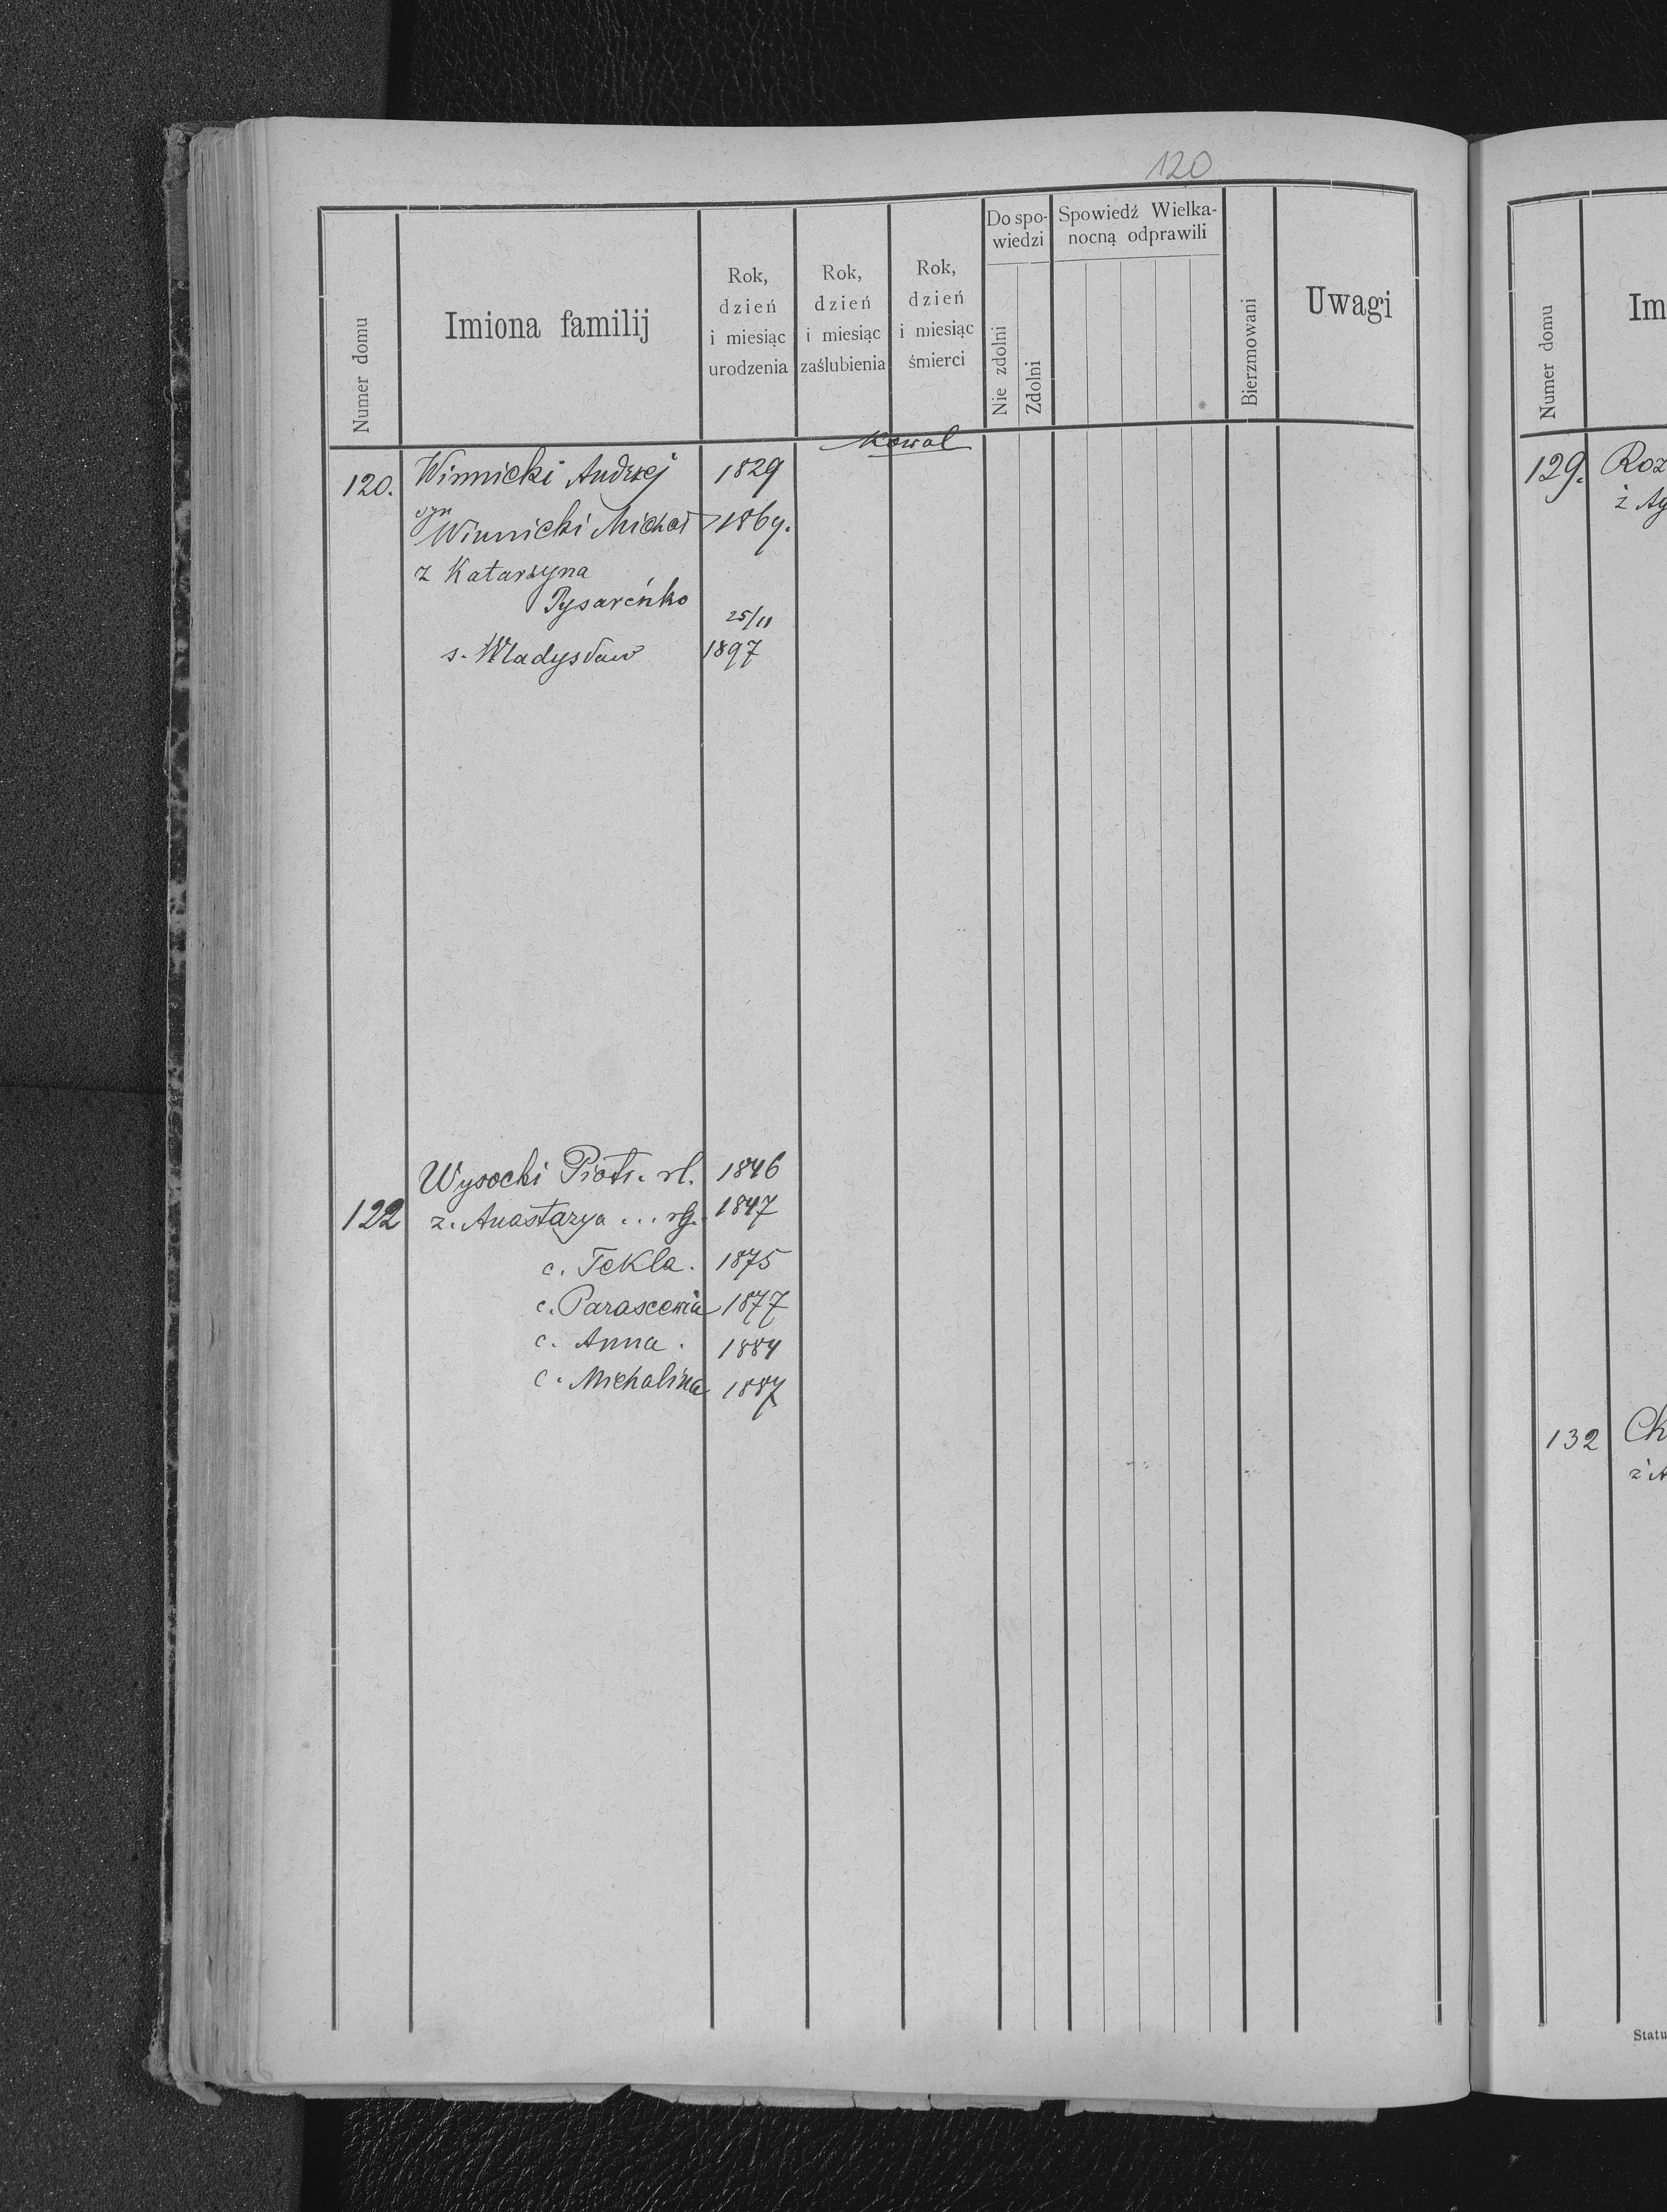 120
Numer domu
Imiona familij
Rok,
dzień
i miesiąc
urodzenia
Rok,
dzień
i miesiąc
zaślubienia
Rok,
dzień
i miesiąc
śmierci
Do spo-
wiedzi
Nie zdolni
Zdolni
Spowiedź Wielka-
nocną odprawili
Bierzmowani
Uwagi
Kowal
120. Winnicki Andrzej 1829
syn
Winnicki Michał 1869.
z Katarzyna
Pysareńko
25/11
s. Władysław 1897
Wysocki Piotr. rl. 1846
122 z. Anastazya ... rg. 1847
c. Tekla. 1875
c. Parascewia 1877
c. Anna. 1884
c. Michalina 1887
Numer domu
Im
129. Roz
ż Ag
132 Ch
ż A
Statu